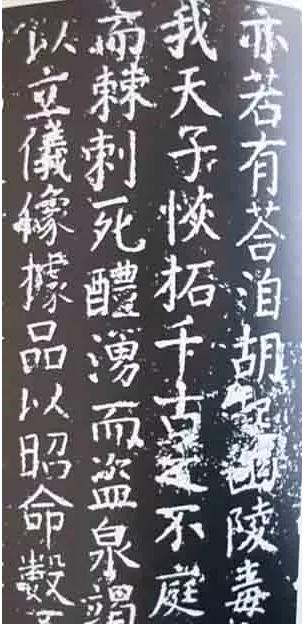 亦若有荅洎胡陵毒
我天子恢拓千古不庭
而棘刺死醴湧而盗泉竭
以立儀緣據品以昭命數